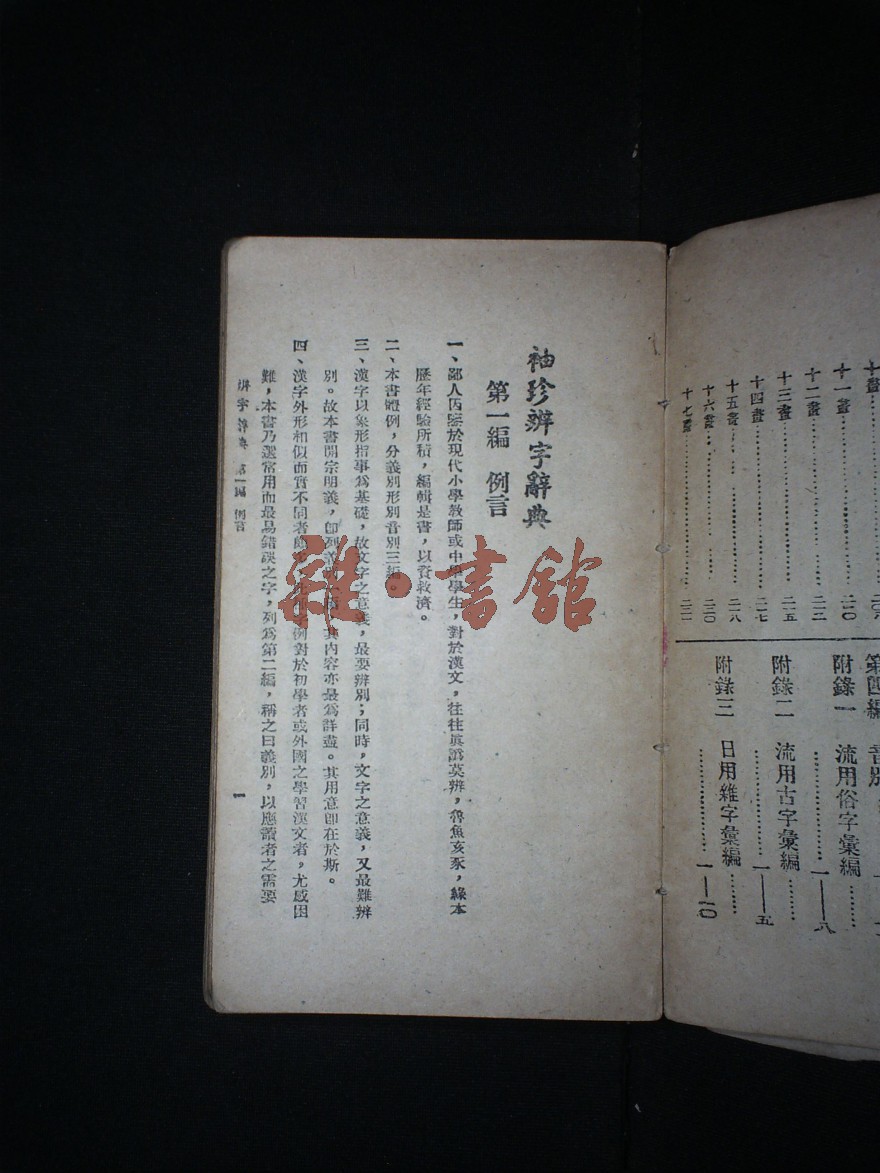 十一畫……二一〇
十二畫……二一二
十三畫……二一五
十四畫……二一七
十五畫……二一八
十六畫……二二〇
十七畫……二二二
第四編 音別
附錄一 流用俗字彙編……一—八
附錄二 流用古字彙編……一—五
附錄三 日用雜字彙編……一—二〇
袖珍辨字辭典
第一編 例言
一、鄙人因鑒於現代小學教師或中學學生，對於漢文，往往眞譌莫辨，魯魚亥豕，緣本
歷年經驗所積，編輯是書，以資救濟。
二、本書體例，分義別形別音別三編。
三、漢字以象形指事爲基礎，故文字之意義，最要辨別；同時，文字之意義，又最難辨
別。故本書開宗明義，卽列義 其內容亦最爲詳盡。其用意卽在於斯。
四、漢字外形相似而實不同者 例對於初學者或外國之學習漢文者，尤感困
難，本書乃選常用而最易錯誤之字，列爲第二編，稱之曰義別，以應讀者之需要
辨字辭典 第一編 例言
一
雜·書館